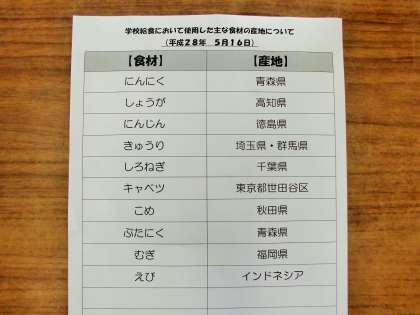 学校給食において使用した主な食材の産地について
（平成２８年　５月１６日）
【食材】　【産地】
にんにく　青森県
しょうが　高知県
にんじん　徳島県
きゅうり　埼玉県・群馬県
しろねぎ　千葉県
キャベツ　東京都世田谷区
こめ　秋田県
ぶたにく　青森県
むぎ　福岡県
えび　インドネシア